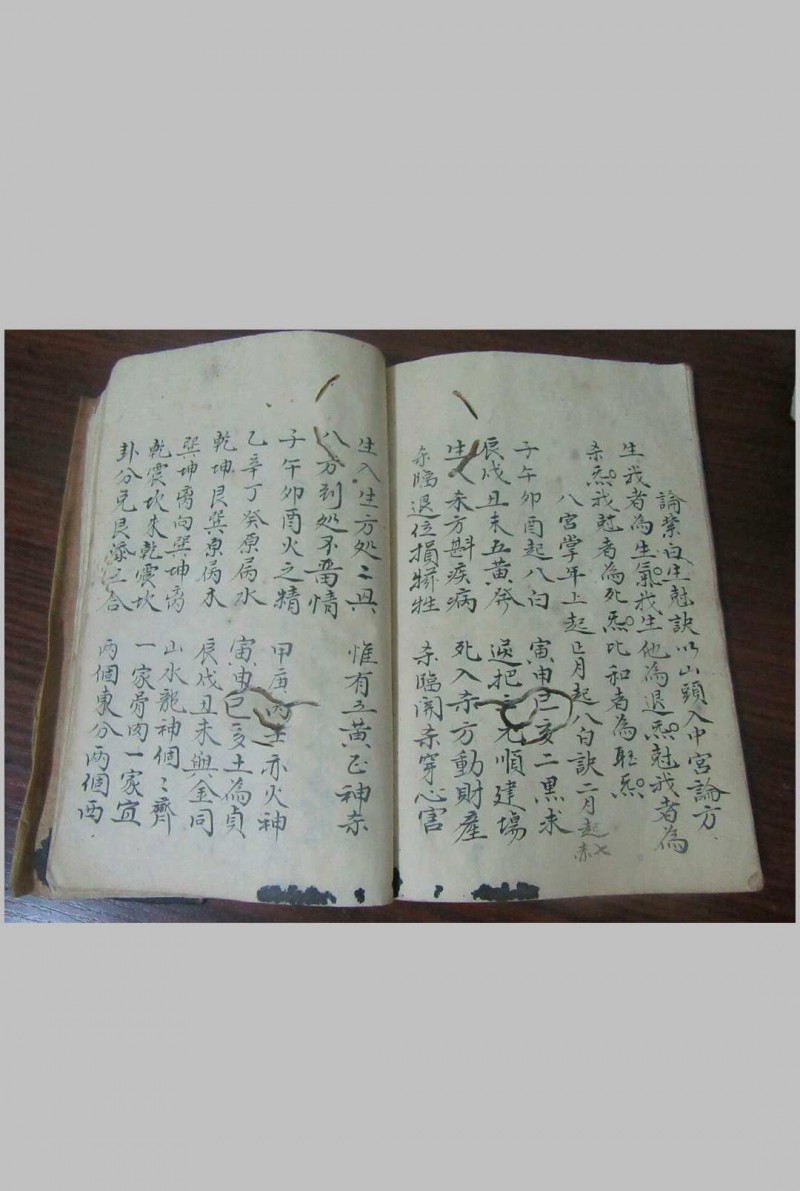 論紫白生尅訣以山頭入中宮論方
生我者為生氣我生他為退炁尅我者為
杀炁我尅者為死炁比和者為旺炁
八宮掌年上起正月起八白訣二月起七赤
子午卯酉起八白 寅申巳亥二黑求
辰戌丑未五黄發 逆把三元順建塲
生入杀方斟疾病 死入杀方動財產
杀臨退位損犠牲 杀臨関杀穿心害
生入生方処二具 惟有五黄正神杀
八方到処不畱情
子午卯酉火之精 甲庚丙壬亦火神
乙辛丁癸原属水 寅申巳亥土為貞
乾坤艮巽原属木 辰戌丑未與金同
巽坤离向巽坤离 山水龍神個〻齊
乾震坎來乾震坎 一家骨肉一家宜
卦分兑艮 三合 兩個東分兩個西